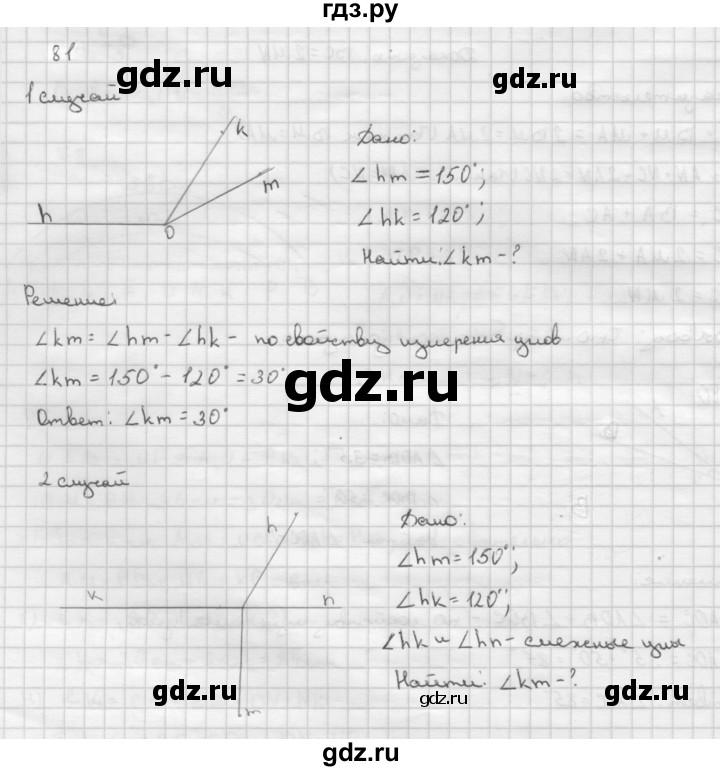 гдз.ру
81
gdz.ru
gdz.ru
1 случай
k
m
h
O
Дано:
∠hm = 150°;
∠hk = 120°;
Найти: ∠km - ?
gdz.ru
gdz.ru
Решение:
∠km = ∠hm - ∠hk - по свойству измерения углов
∠km = 150° - 120° = 30°
gdz.ru
Ответ: ∠km = 30°
2 случай
h
k
n
m
Дано:
∠hm = 150°;
∠hk = 120°;
∠hk и ∠hn - смежные углы
Найти: ∠km - ?
gdz.ru
gdz.ru
gdz.ru
gdz.ru